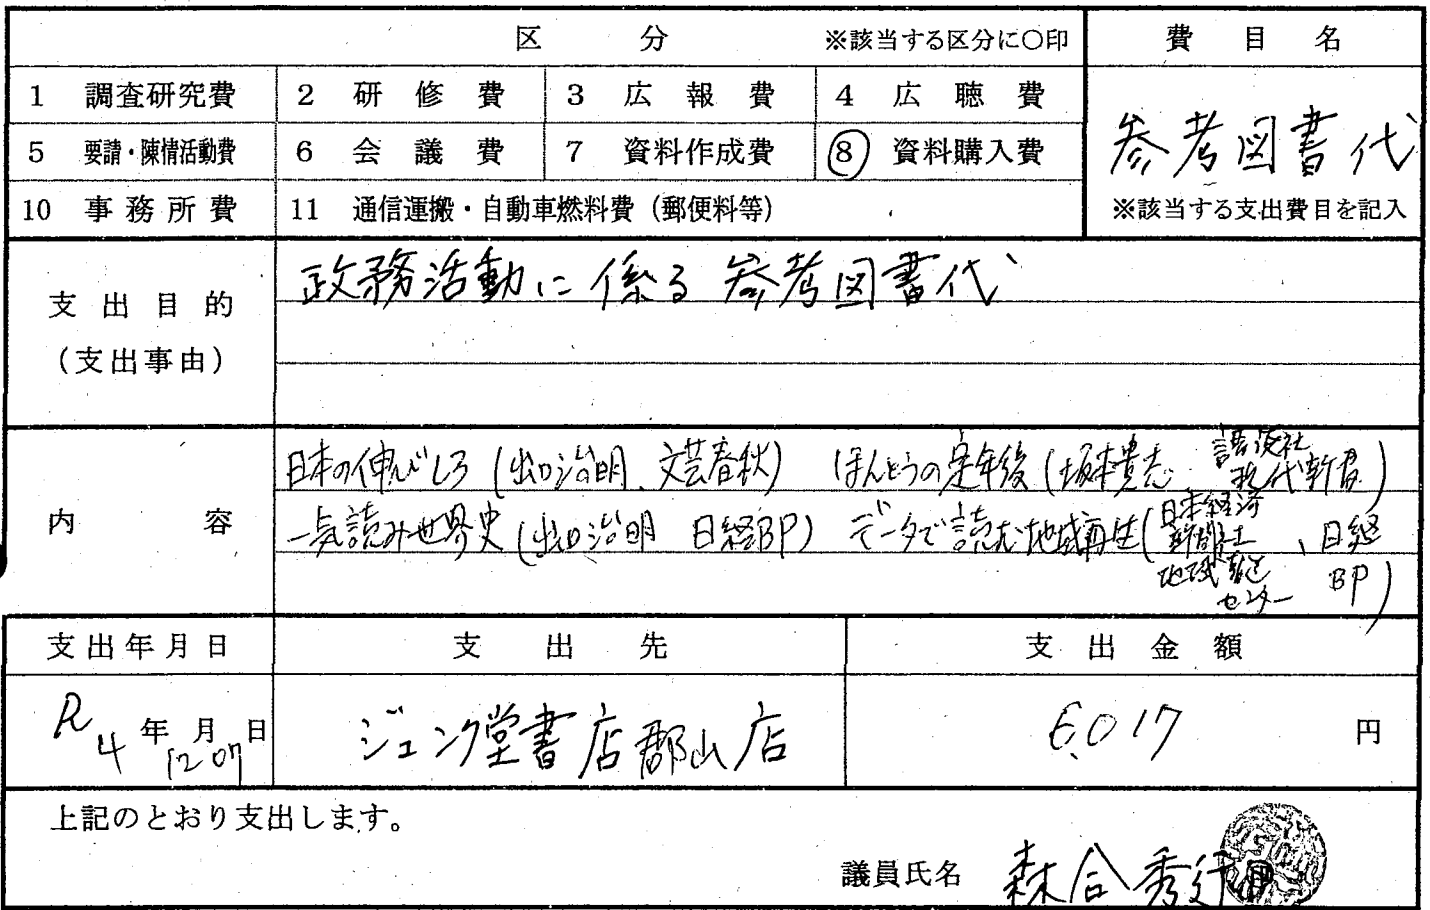 区 分 ※該当する区分に〇印 費目名
1 調査研究費 2 研修費 3 広報費 4 広聴費
参考図書代
5 要請・陳情活動費 6 会議費 7 資料作成費 ⑧ 資料購入費
10 事務所費 11 通信運搬・自動車燃料費（郵便料等） ※該当する支出費目を記入
支出目的
（支出事由）
政務活動に係る参考図書代
内容
日本の伸びしろ（出口治明、文芸春秋） ほんとうの定年後（坂本貴志 講談社現代新書）
一気読み世界史（出口治明 日経BP） データで読む地域再生（日本経済新聞社地域報道センター、日経BP）
支出年月日 支出先 支出金額
R4年12月07日 ジュンク堂書店郡山店 6,017円
上記のとおり支出します。
議員氏名 森合秀行 印